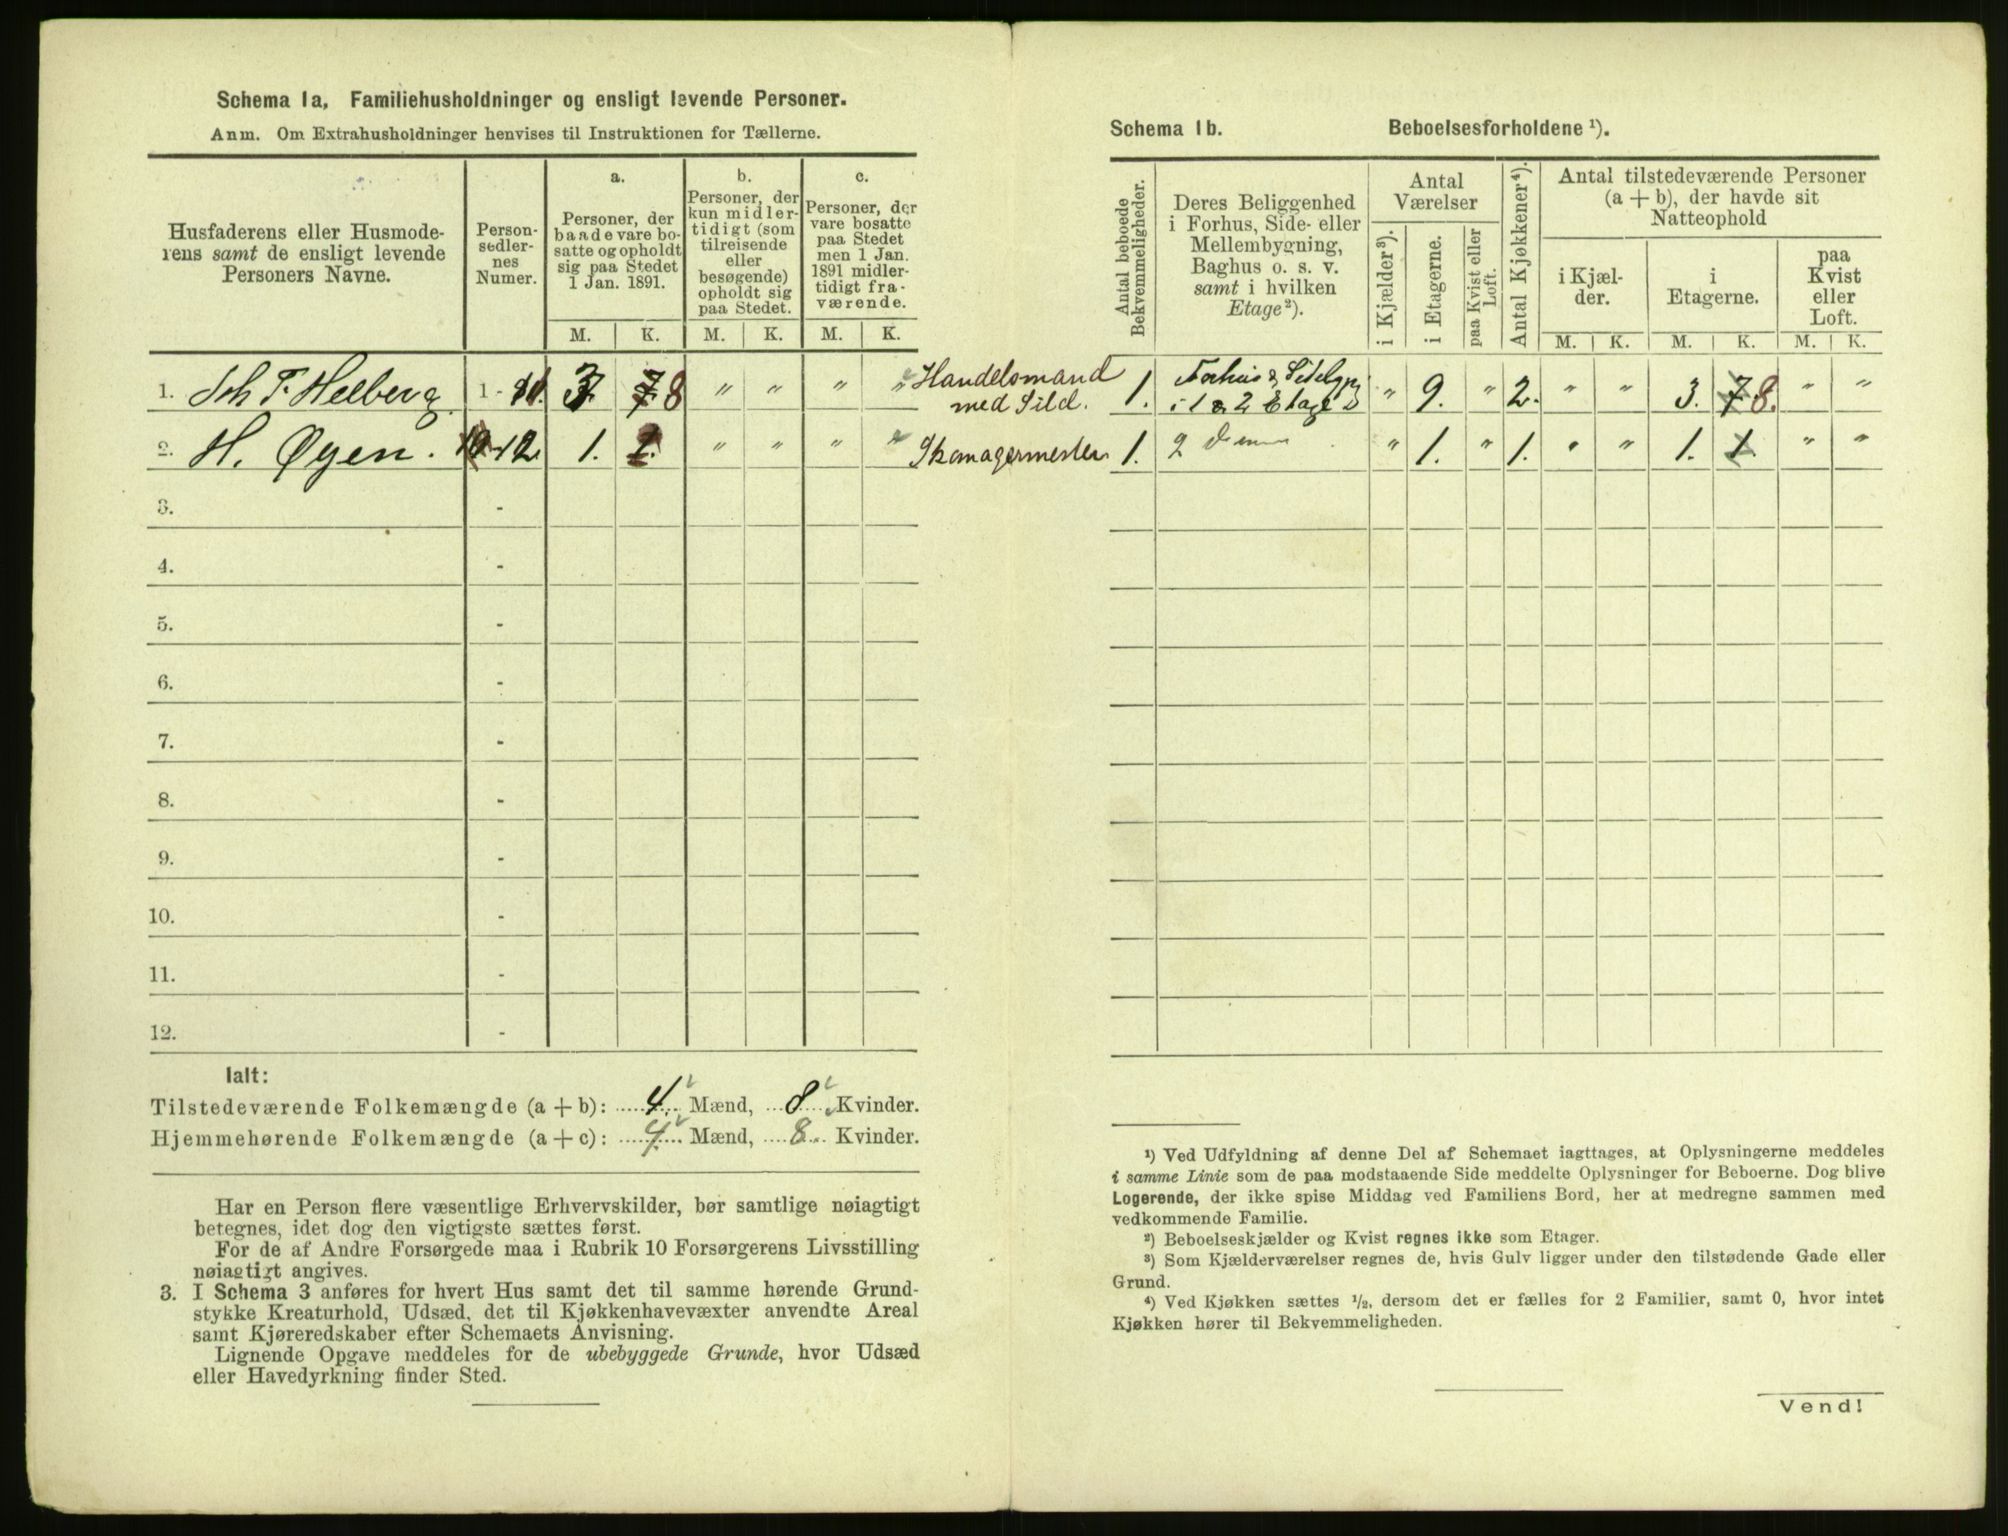 Schema 1a, Familiehusholdninger og ensligt levende Personer.
Anm. Om Extrahusholdninger henvises til Instruktionen for Tællerne.
Husfaderens eller Husmode-
rens samt de ensligt levende
Personers Navne.
Person-
sedler-
nes
Numer.
a.
Personer, der
baade vare bo-
satte og opholdt
sig paa Stedet
1 Jan. 1891.
b.
Personer, der
kun midler-
tidigt (som
tilreisende
eller
besøgende)
opholdt sig
paa Stedet.
c.
Personer, der
vare bosatte
paa Stedet
men 1 Jan.
1891 midler-
tidigt fra-
værende.
M. K. M. K. M. K.
1. Joh F. Helberg 1 - 11. 3. 7 8 " " " " Handelsmand
med Sild.
2. H. Øyen. 12. 1. 1. " " " " Skomagermester
3. -
4. -
5. -
6. -
7. -
8. -
9. -
10. -
11. -
12. -
Ialt:
Tilstedeværende Folkemængde (a + b): 4. Mænd, 8 Kvinder.
Hjemmehørende Folkemængde (a + c): 4. Mænd, 8. Kvinder.
Har en Person flere væsentlige Erhvervskilder, bør samtlige nøiagtigt
betegnes, idet dog den vigtigste sættes først.
For de af Andre Forsørgede maa i Rubrik 10 Forsørgerens Livsstilling
nøiagtigt angives.
3. I Schema 3 anføres for hvert Hus samt det til samme hørende Grund-
stykke Kreaturhold, Udsæd, det til Kjøkkenhavevæxter anvendte Areal
samt Kjøreredskaber efter Schemaets Anvisning.
Lignende Opgave meddeles for de ubebyggede Grunde, hvor Udsæd
eller Havedyrkning finder Sted.
Schema 1b. Beboelsesforholdene ¹).
Antal beboede
Bekvemmeligheder.
Deres Beliggenhed
i Forhus, Side- eller
Mellembygning,
Baghus o. s. v.
samt i hvilken
Etage²).
Antal
Værelser
i Kjælder³).
i Etagerne.
paa Kvist eller
Loft.
Antal Kjøkkener⁴).
Antal tilstedeværende Personer
(a + b), der havde sit
Natteophold
i Kjæl-
der.
i
Etagerne.
paa
Kvist
eller
Loft.
M. K. M. K. M. K.
1. Forhus & Sidebyg
i 1 & 2 Etage " 9. " 2. " " 3. 7 8. " "
1. 2 " 1. " 1. " " 1. 1. " "
¹) Ved Udfyldning af denne Del af Schemaet iagttages, at Oplysningerne meddeles
i samme Linie som de paa modstaaende Side meddelte Oplysninger for Beboerne. Dog blive
Logerende, der ikke spise Middag ved Familiens Bord, her at medregne sammen med
vedkommende Familie.
²) Beboelseskjælder og Kvist regnes ikke som Etager.
³) Som Kjælderværelser regnes de, hvis Gulv ligger under den tilstødende Gade eller
Grund.
⁴) Ved Kjøkken sættes ½, dersom det er fælles for 2 Familier, samt 0, hvor intet
Kjøkken hører til Bekvemmeligheden.
Vend!